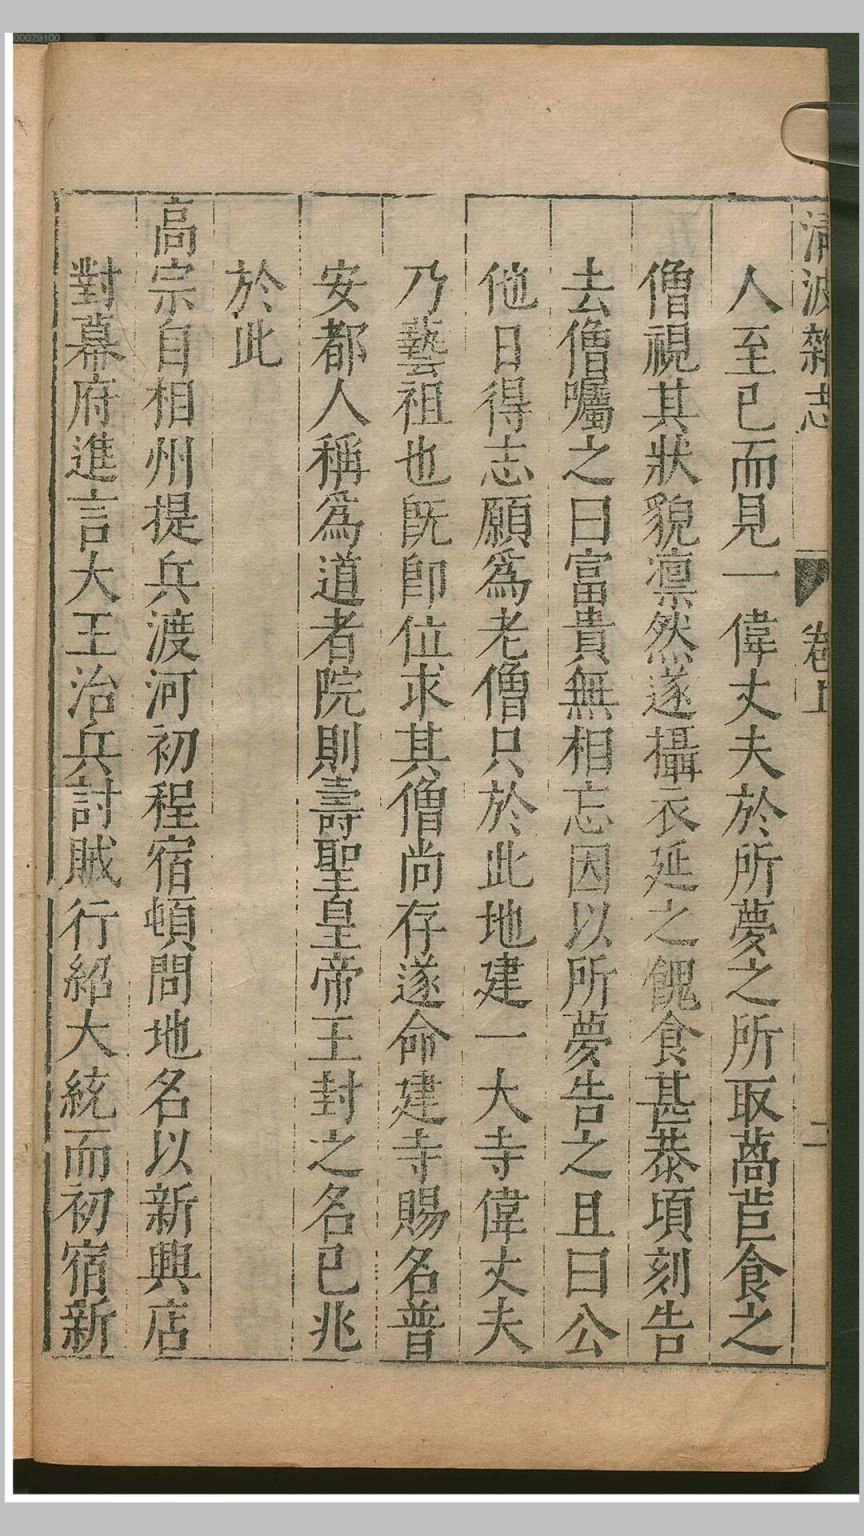 清波雜志 卷上 二
人至已而見一偉丈夫於所夢之所取萵苣食之
僧視其狀貌凛然遂攝衣延之餽食甚恭項刻告
去僧囑之曰富貴無相忘因以所夢告之且曰公
他日得志願爲老僧只於此地建一大寺偉丈夫
乃藝祖也旣卽位求其僧尚存遂命建寺賜名普
安都人稱爲道者院則壽聖皇帝王封之名已兆
於此
高宗自相州提兵渡河初程宿頓問地名以新興店
對幕府進言大王治兵討賊行紹大統而初宿新